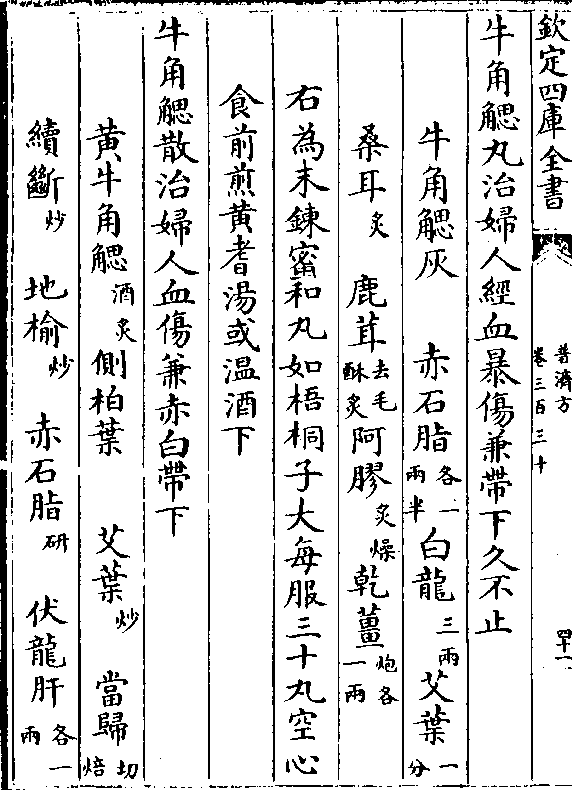 欽定四庫全書
普濟方
卷三百三十
四十一
牛角䚡丸治婦人經血暴傷兼帶下久不止
牛角䚡灰 赤石脂各一兩半 白龍三兩 艾葉一分
桑耳炙 鹿茸去毛酥炙 阿膠炙燥 乾薑炮各一兩
右為末鍊蜜和丸如梧桐子大每服三十丸空心
食前煎黄耆湯或温酒下
牛角䚡散治婦人血傷兼赤白帶下
黄牛角䚡酒炙 側柏葉 艾葉炒 當歸切焙
續斷炒 地榆炒 赤石脂研 伏龍肝各一兩